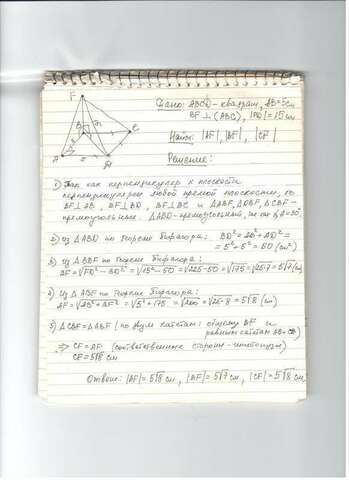 F
B
C
A
D
Дано: ABCD - квадрат, AB=5см
BF ⊥ (ABC), |FD|=15см
Найти: |AF|, |BF|, |CF|
Решение:
1) Так как перпендикуляр к плоскости
перпендикулярен любой прямой плоскости, то
BF⊥AB, BF⊥BD, BF⊥BC и ΔABF, ΔDBF, ΔCBF -
прямоугольные. ΔABD-прямоугольный, т.к.
2) Из ΔABD по теореме Пифагора: BD²=AB²+AD²=
=5²+5²=50 (см²)
3) Из ΔBDF по теореме Пифагора:
BF=√FD²-BD²=√15²-50=√225-50=√175=√25·7=5√7(см)
4) Из ΔABF по теореме Пифагора:
AF=√AB²+BF²=√5²+175=√200=√25·8=5√8(см)
5) ΔCBF=ΔABF (по двум катетам: общему BF и
равным катетам AB=CB)
⇒ CF=AF (соответственные стороны-гипотенузы)
CF=5√8 см
Ответ: |AF|=5√8 см, |BF|=5√7 см, |CF|=5√8 см.